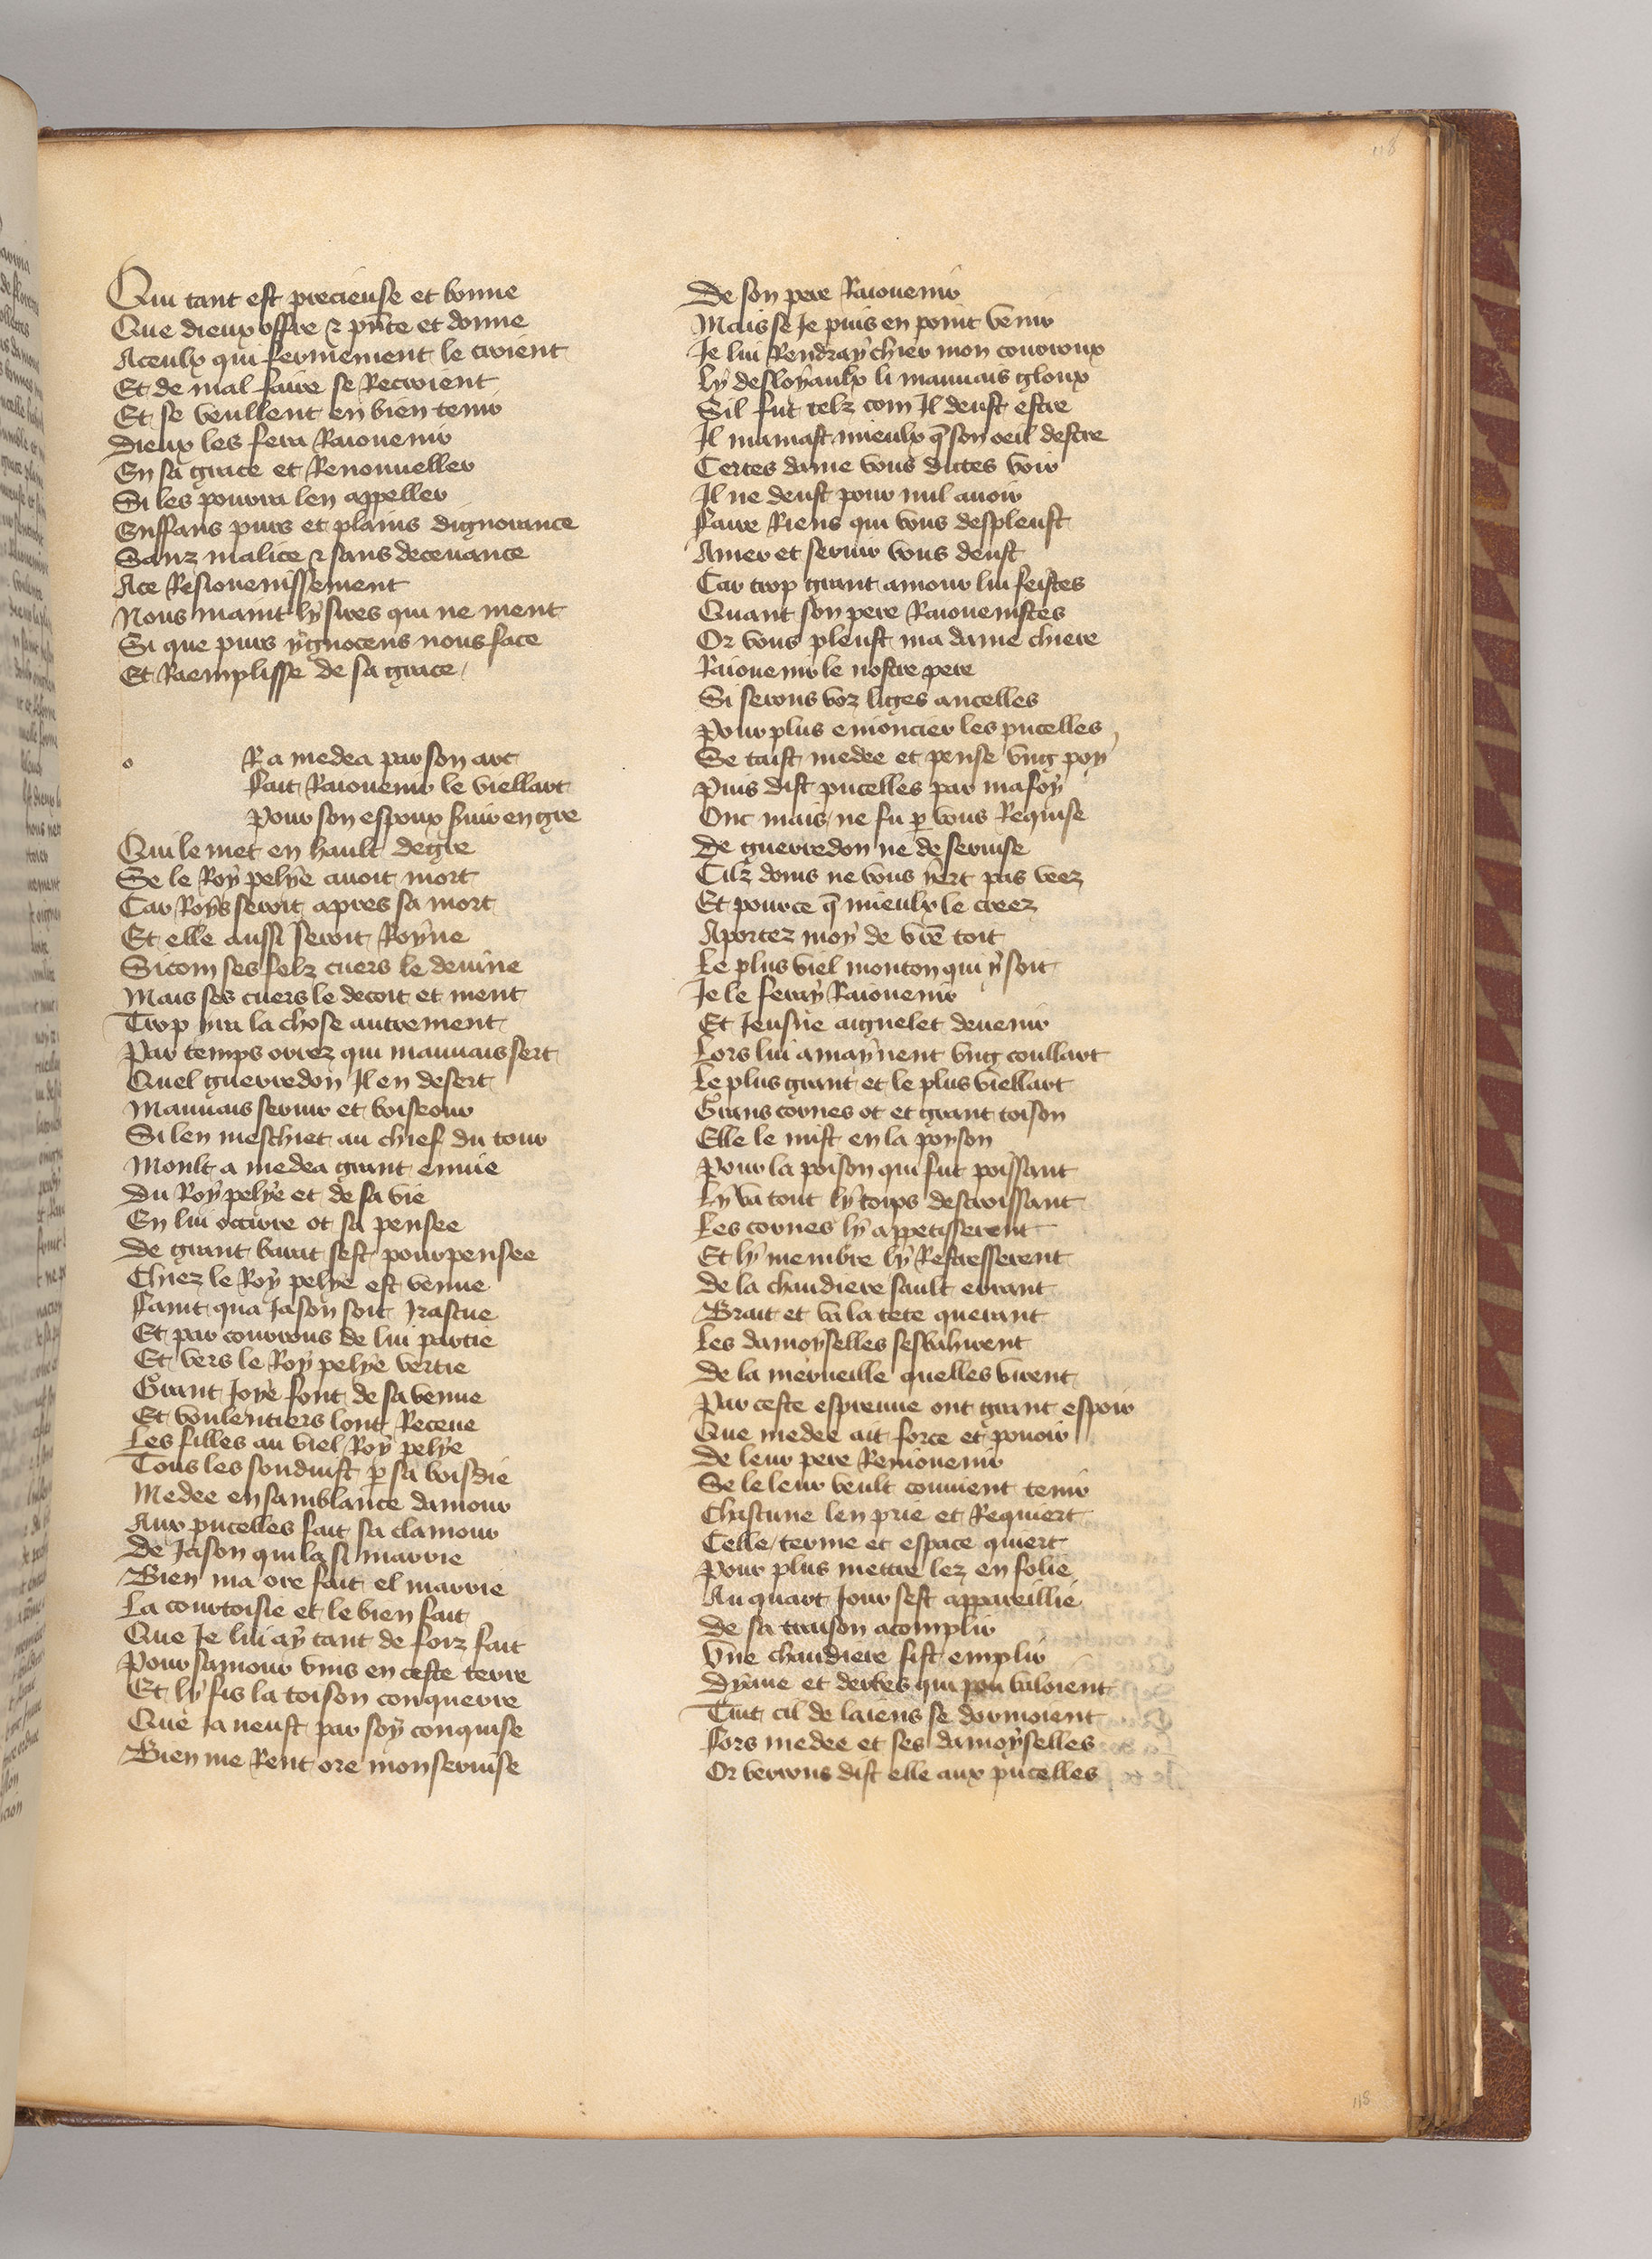 118
Qui tant est precieuse et bonne
Que dieux offre & pñte et donne
Aceulx qui fermement le croient
Et de mal faire se Recroient
Et se veullent en bien tenir
Dieux les fera Raiouenir
En sa grace et Renouueller
Si les pourra len appeller
Enffans purs et plains dignorance
Sanz malice & sans deceuance
Ace Resiouenissement
Nous maint ly sires qui ne ment
Si que purs ygnocens nous face
Et Raemplisse de sa grace
o Ra medea par son art
Fait Raiouenir le viellart
Pour son espoux seruir en gre
Qui le met en hault degre
Se le Roy pelye auoit mort
Car Roys seroit apres sa mort
Et elle aussi seroit Royne
Sicom ses felz cuers le deuine
Mais ses cuers le decoit et ment
Trop yra la chose autrement
Par temps orrez qui mauuais sert
Quel guerredon Il en desert
Mauuais seruir et boiseour
Si len meschiet au chief du tour
Moult a medea grant enuie
Du Roy pelye et de sa vie
En lui occirre ot sa pensee
De grant barat sest pourpensee
Chiez le Roy pelye est venue
Faint qua Iason soit Irascue
Et par courrous de lui partie
Et vers le Roy pelye vertie
Grant Ioye font de sa venue
Et voulentiers lont Receue
Les filles au viel Roy pelye
Tous les souduist p sa boisdie
Medee en samblance damour
Aux pucelles fait sa clamour
De Iason qui la si marrie
Bien ma ore fait el marrie
La courtoisie et le bien fait
Que Ie lui ay tant de forz fait
Pour samour vins en ceste terre
Et ly fis la toison conquerre
Que Ia neust par soy conquise
Bien me Rent ore mon seruise
De son pere Raiouenir
Mais se Ie puis en point venir
Ie lui Rendray chier mon courroux
Ly desloyaulx li mauuais gloux
Sil fut telz com Il deust estre
Il mamast mieulx q̄ son oeil destre
Certes dame vous dictes voir
Il ne deust pour nul auoir
Faire Riens qui vous despleust
Amer et seruir vous deust
Car trop grant amour lui feistes
Quant son pere Raiouenistes
Or vous pleust ma dame chiere
Raiouenir le nostre pere
Si serons voz liges ancelles
Pour plus enioncier les pucelles
Se taist medee et pense vng poy
Puis dist pucelles par ma foy
Onc mais ne fu p vous Requise
De guerredon ne de seruise
Cilz dons ne vous yert pas veez
Et pource q̄ mieulx le creez
Aportez moy de vr̄e toit
Le plus viel mouton qui y soit
Ie le feray Raiouenir
Et Ieusne aignelet deuenir
Lors lui amaynent vng coullart
Le plus grant et le plus viellart
Grans cornes ot et grant toison
Elle le mist en la poyson
Pour la poison qui fut poissant
Ly va tout ly corps descroissant
Les cornes ly appetisserent
Et ly membre ly Restresserent
De la chaudiere sault errant
Brait et va la tete querant
Les damoyselles sesbahirent
De la merueille quelles virent
Par ceste espreuue ont grant espoir
Que medee ait force et pouoir
De leur pere Reniouenir
Se le leur veult conuient tenir
Chascune len prie et Requiert
Celle terme et espace quiert
Pour plus mettre lez en folie
Au quart Iour sest appareillie
De sa traison acomplir
Vne chaudiere fist emplir
Dyaue et derbes qui pou valoient
Tuit cil de laiens se dormoient
Fors medee et ses damoyselles
Or verrons dist elle aux pucelles
118